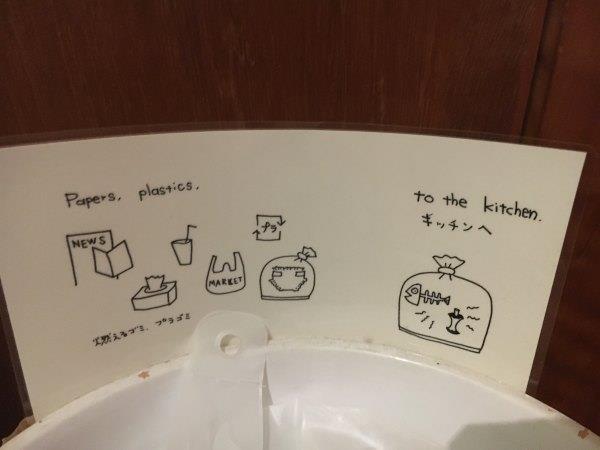 Papers, plastics.
NEWS
プラ
MARKET
燃えるゴミ、プラゴミ
to the kitchen.
キッチンへ